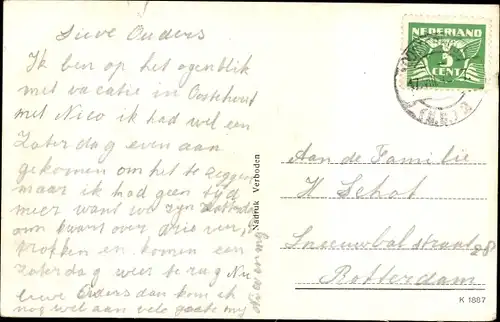 Lieve Ouders
Ik ben op het ogenblik
met vacatie in Oostehout
met Nico ik had wel een
Zaterdag even aan
gekomen om het te zeggen
maar ik had geen tijd
meer want we zijn Zaterdag
om kwart over drie ver
trokken en komen
zaterdag weer terug Nu
lieve Ouders dan kom ik
nog wel aan vele groete
Nico en
Nadruk Verboden
NEDERLAND
3
CENT
Aan de Familie
H Schot
Sneeuwbalstraat 28
Rotterdam
K 1887